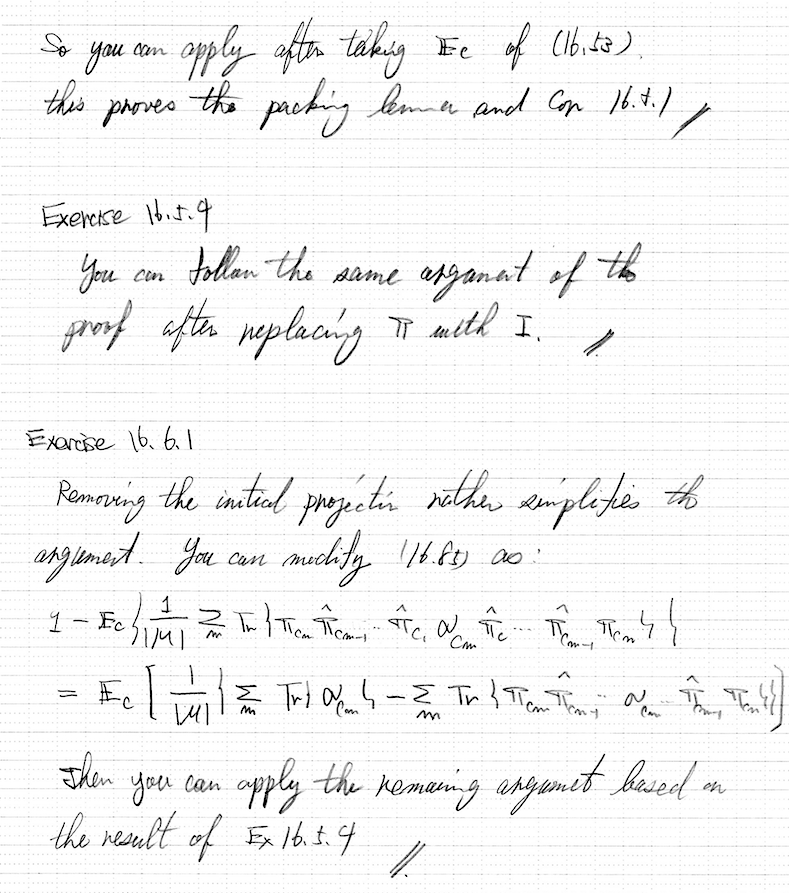 So you can apply after taking 𝔼c of (16.53).
this proves the packing lemma and Cor 16.5.1 //
Exercise 16.5.4
You can follow the same argument of the
proof after replacing Π with I. //
Exercise 16.6.1
Removing the initial projector rather simplifies the
argument. You can modify (16.85) as:
1 - 𝔼c { 1/|M| Σm Tr { Πcm Π̂cm-1 ... Π̂c1 ρcm Π̂c1 ... Π̂cm-1 Πcm } }
= 𝔼c [ 1/|M| { Σm Tr { ρcm } - Σm Tr { Πcm Π̂cm-1 ... ρcm ... Π̂cm-1 Πcm } } ]
Then you can apply the remaining argument based on
the result of Ex 16.5.4 //